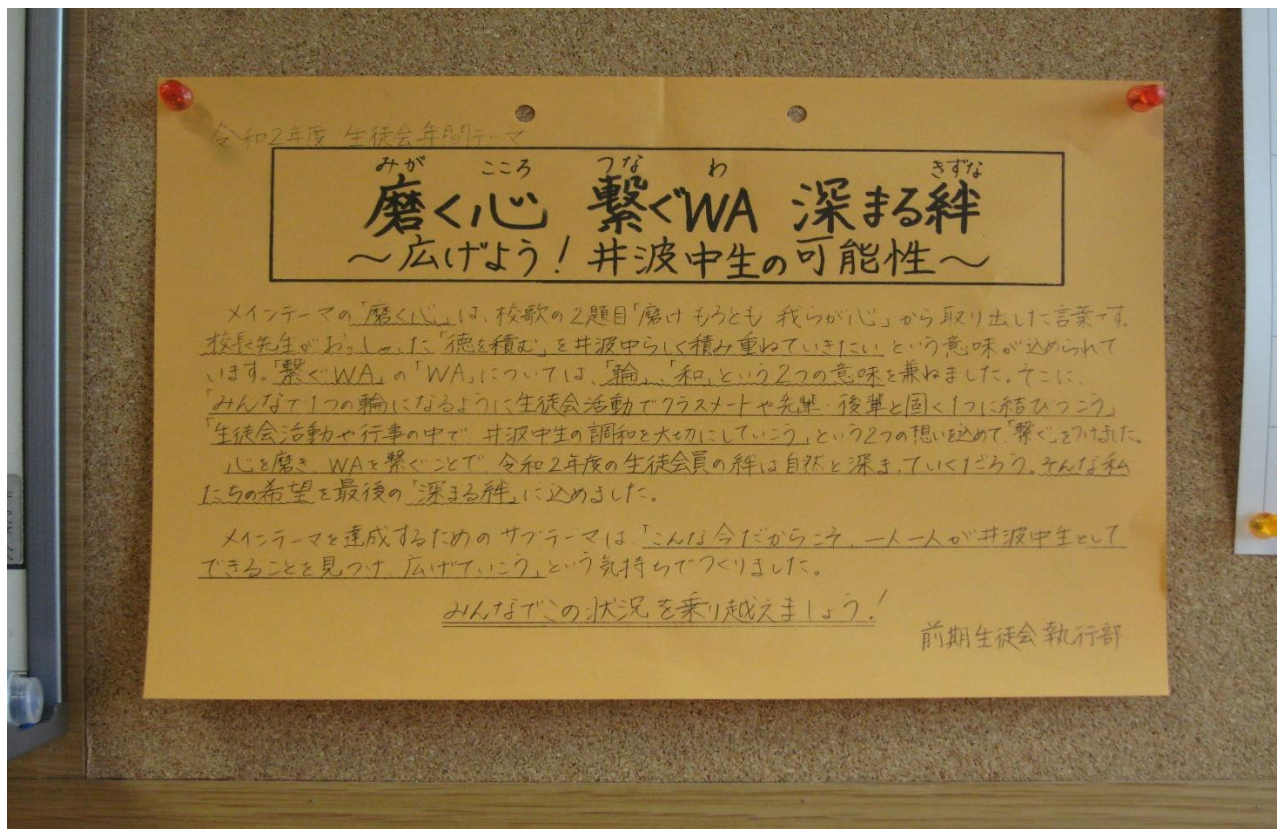 令和2年度 生徒会年間テーマ
みが こころ つな わ きずな
磨く心 繋ぐWA 深まる絆
～広げよう！井波中生の可能性～
メインテーマの「磨く心」は、校歌の2題目「磨け もろとも 我らが心」から取り出した言葉です。
校長先生がおっしゃった「徳を積む」を井波中らしく積み重ねていきたいという意味が込められて
います。「繋ぐWA」の「WA」については、「輪」、「和」という2つの意味を兼ねました。そこに、
「みんなで1つの輪になるように生徒会活動でクラスメートや先輩・後輩と固く1つに結びつこう」
「生徒会活動や行事の中で、井波中生の調和を大切にしていこう」という2つの想いを込めて「繋ぐ」をつけました。
心を磨き、WAを繋ぐことで、令和2年度の生徒会員の絆は自然と深まっていくだろう。そんな私
たちの希望を最後の「深まる絆」に込めました。
メインテーマを達成するためのサブテーマは、「こんな今だからこそ、一人一人が井波中生として
できることを見つけ、広げていこう」という気持ちでつくりました。
みんなでこの状況を乗り越えましょう！
前期生徒会執行部